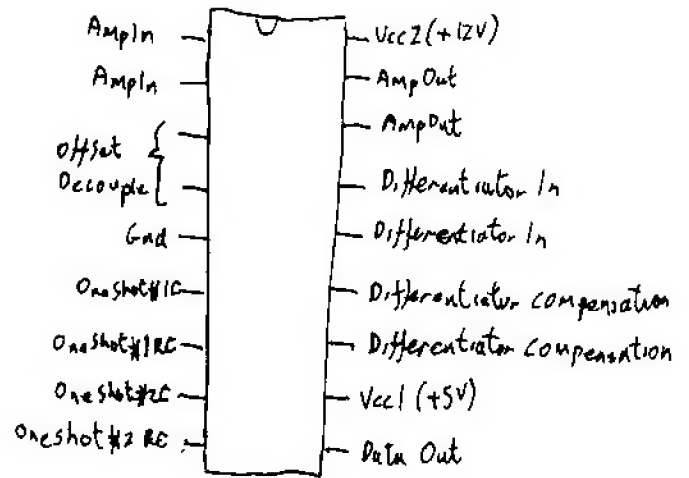 AmpIn
AmpIn
Offset
Decouple
Gnd
OneShot#1C
OneShot#1RC
OneShot#2C
Oneshot#2 RC
Vcc2(+12V)
AmpOut
AmpOut
Differentiator In
Differentiator In
Differentiator compensation
Differentiator compensation
Vcc1 (+5V)
Data Out